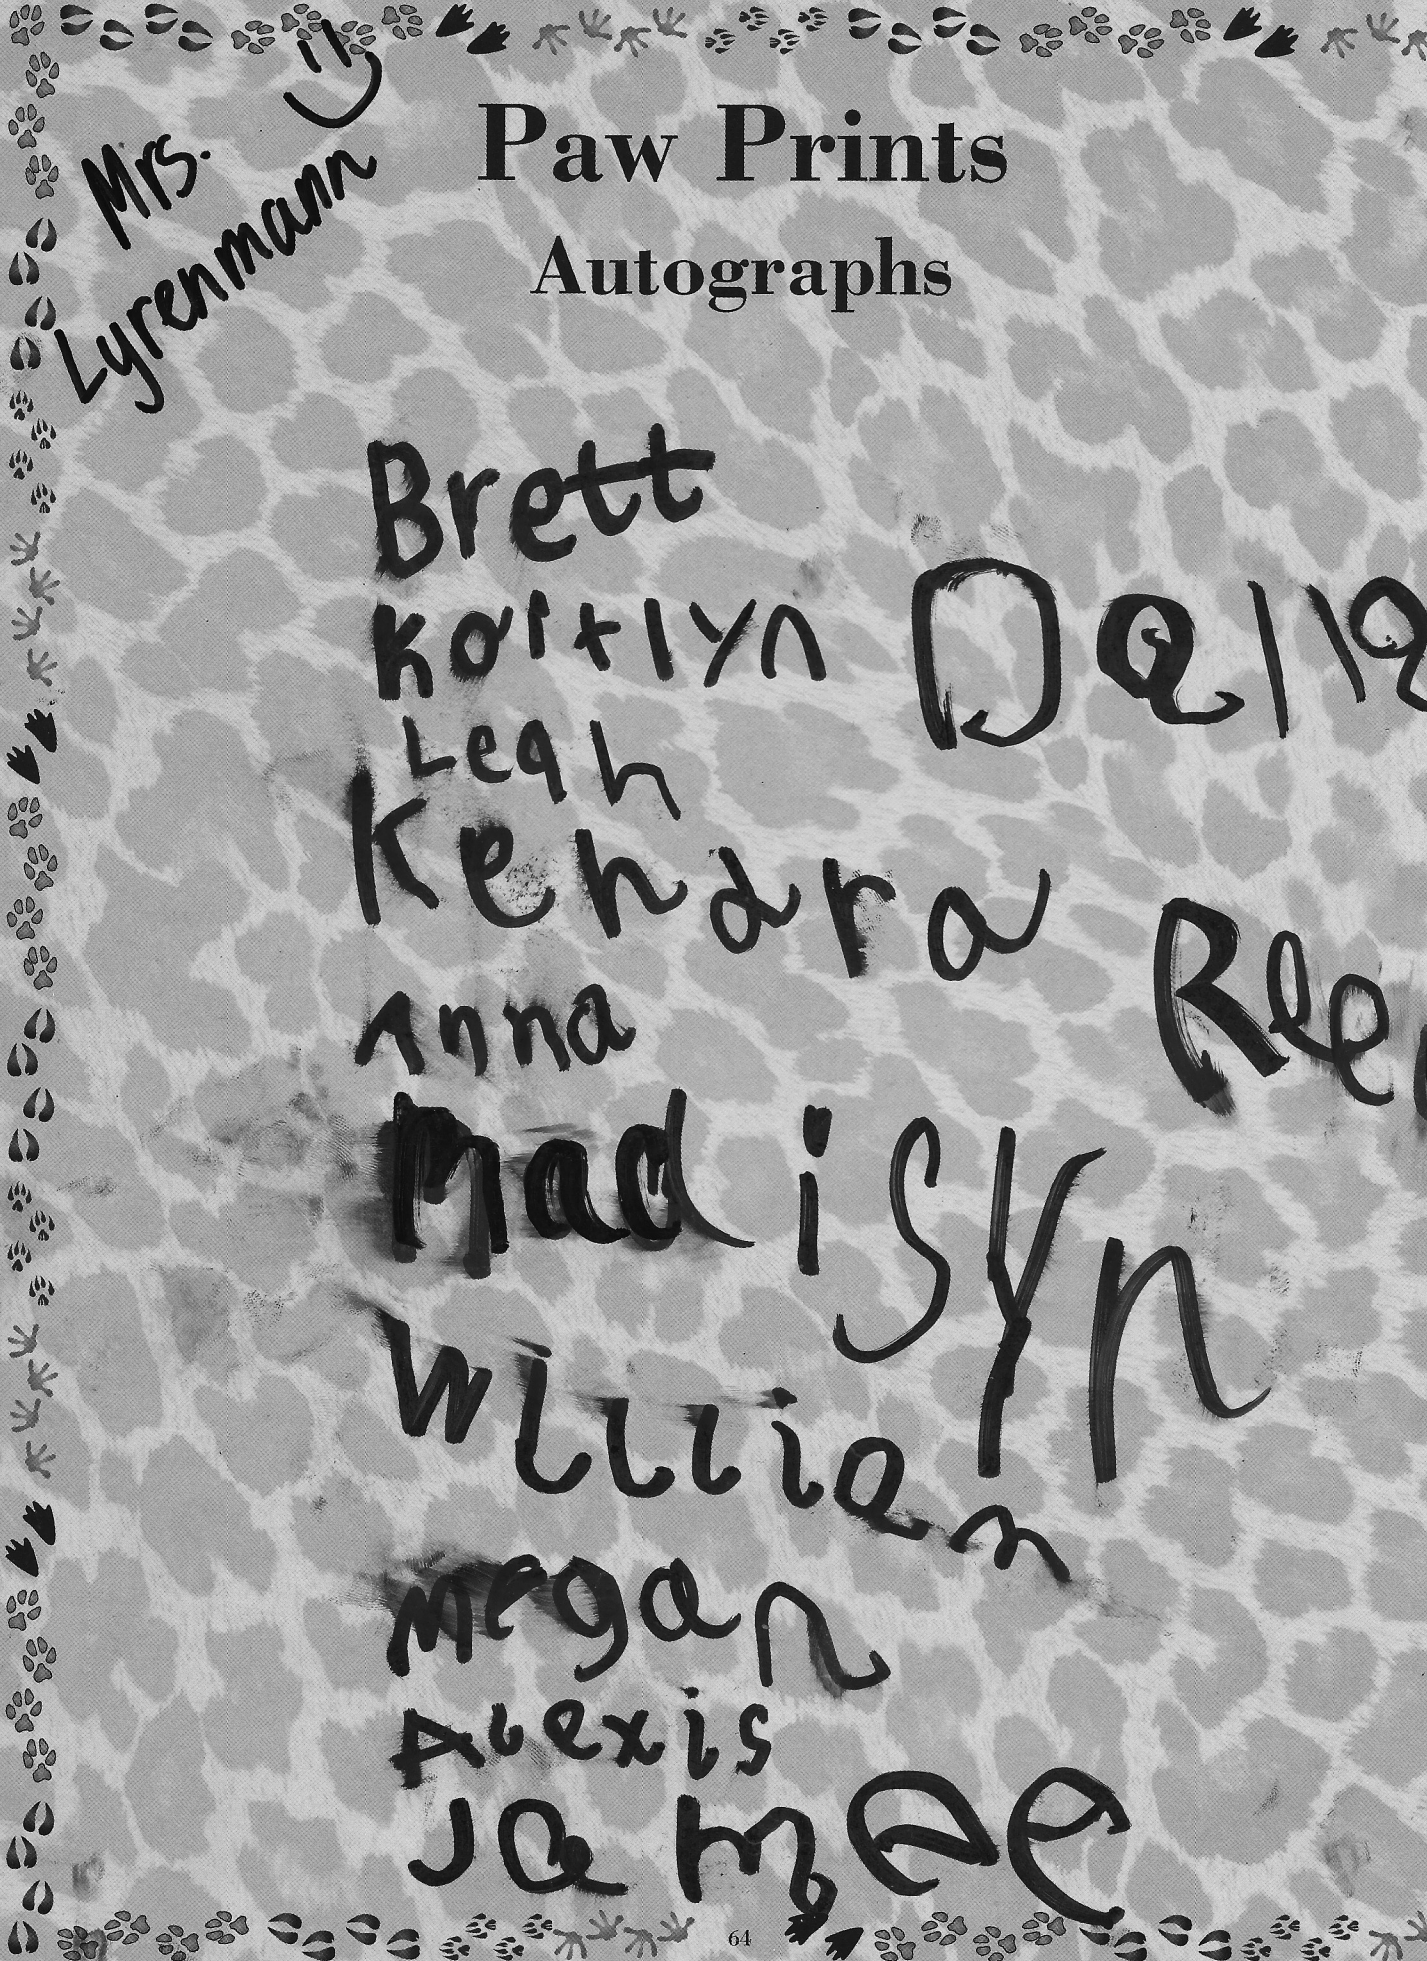 Mrs.
Lyrenmann
Paw Prints
Autographs
Brett
Kaitlyn
Leah
Kendra
Anna
Madisyn
William
Megan
Alexis
Jamee
64